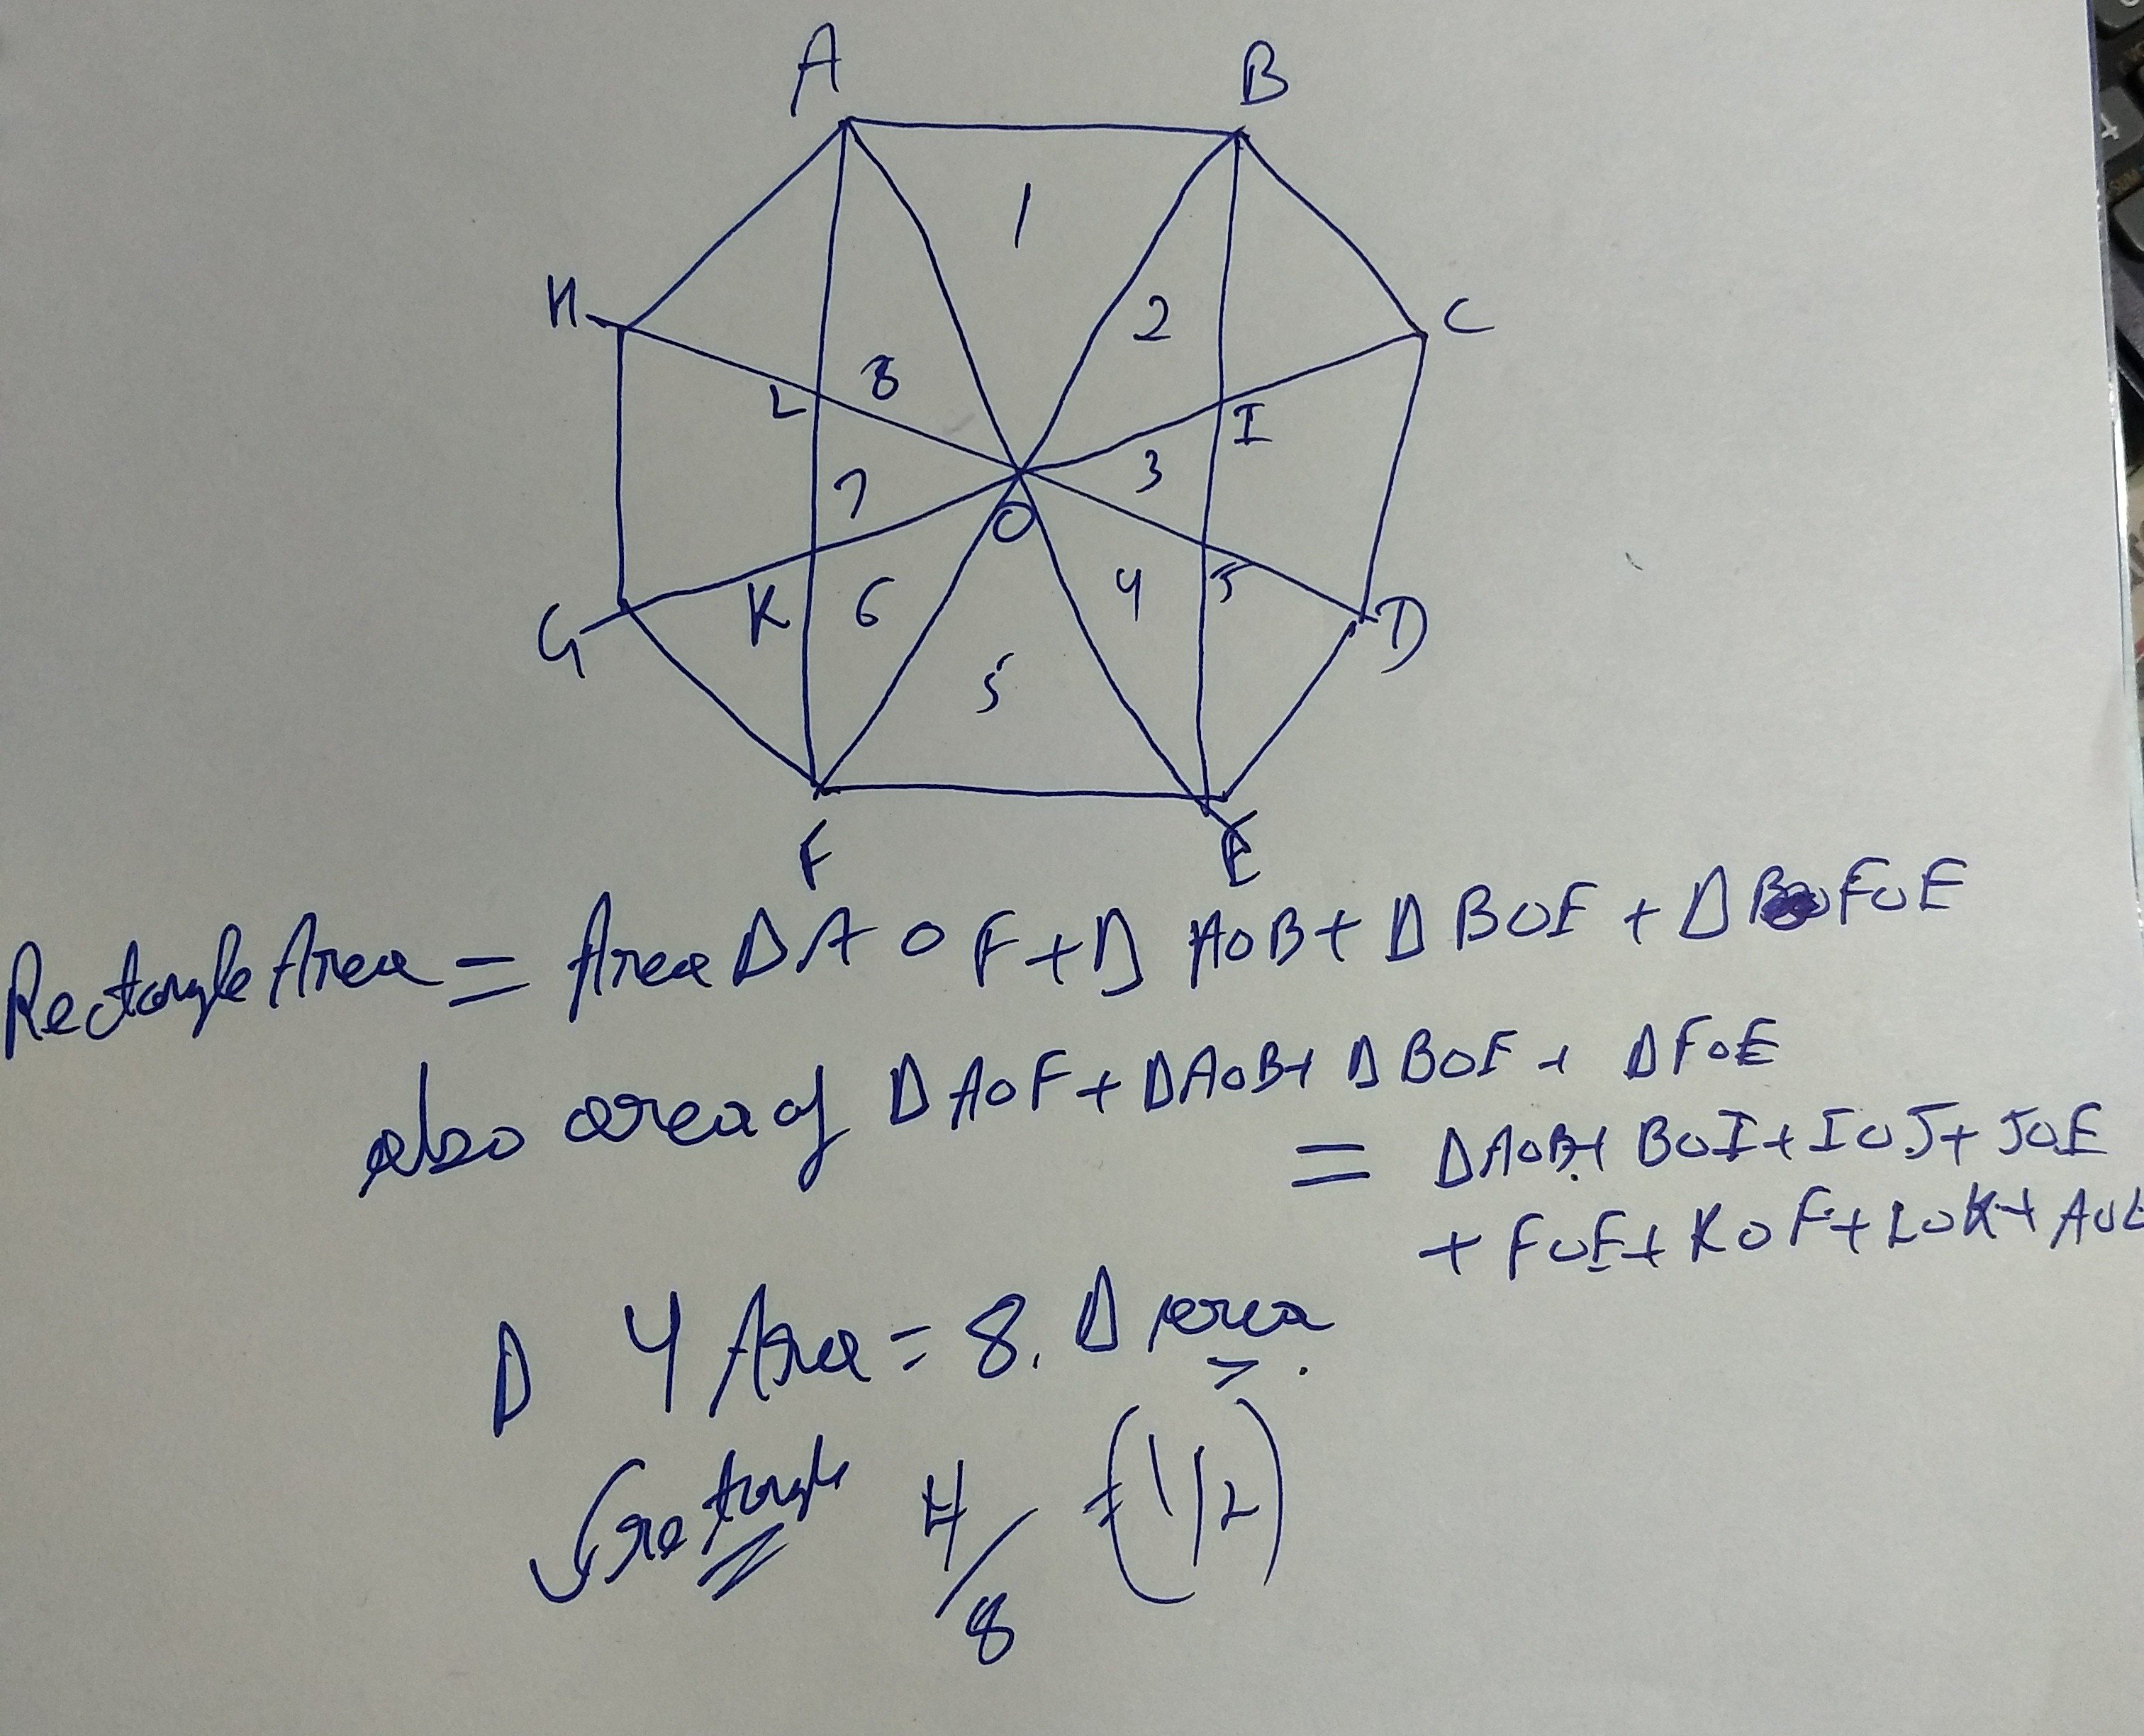 A
B
1
H
2
C
8
L
I
3
7
O
G
K
6
4
J
D
5
F
E
Rectangle Area = Area Δ A O F + Δ AOB + Δ BOE + Δ FOE
also area of Δ AOF + Δ AOB + Δ BOE + Δ FOE
= Δ AOB + BOI + IOJ + JOE
+ FOE + KOF + LOK + AOL
Δ 4 Area = 8. Δ area
rectangle 4/8 = (1/2)